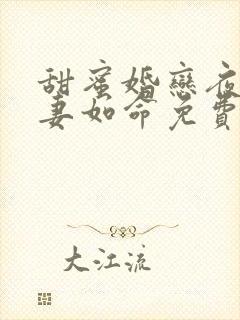 甜蜜婚戀夜
妻如命免費
大江流